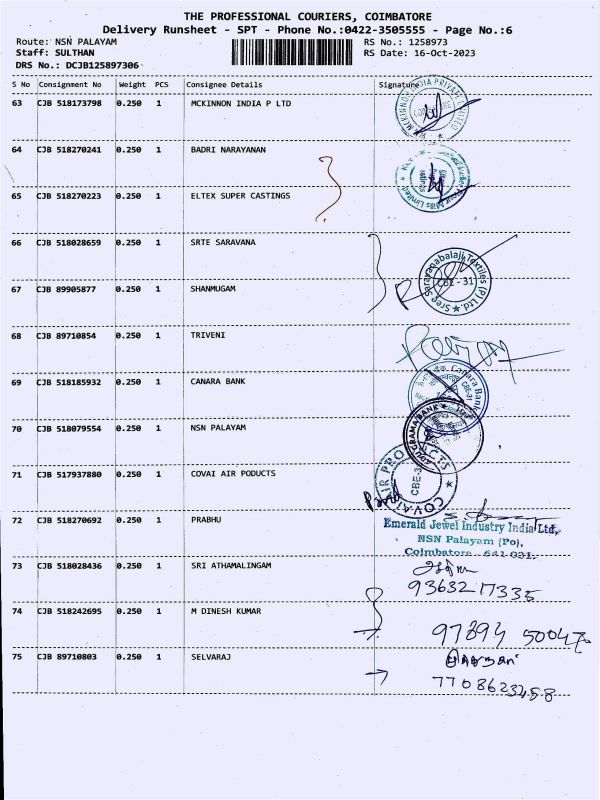 THE PROFESSIONAL COURIERS, COIMBATORE
Delivery Runsheet - SPT - Phone No.:0422-3505555 - Page No.:6
Route: NSN PALAYAM
RS No.: 1258973
Staff: SULTHAN
RS Date: 16-Oct-2023
DRS No.: DCJB125897306
S No Consignment No Weight PCS Consignee Details Signature
63 CJB 518173798 0.250 1 MCKINNON INDIA P LTD
MCKINNON INDIA PRIVATE LIMITED
64 CJB 518270241 0.250 1 BADRI NARAYANAN
65 CJB 518270223 0.250 1 ELTEX SUPER CASTINGS
66 CJB 518028659 0.250 1 SRTE SARAVANA
Sree Saravanabalaji Textiles (P) Ltd.
CBE-31
67 CJB 89905877 0.250 1 SHANMUGAM
68 CJB 89710854 0.250 1 TRIVENI
69 CJB 518185932 0.250 1 CANARA BANK
Canara Bank
70 CJB 518079554 0.250 1 NSN PALAYAM
71 CJB 517937880 0.250 1 COVAI AIR PODUCTS
COVAI AIR PRODUCTS
72 CJB 518270692 0.250 1 PRABHU
Emerald Jewel Industry India Ltd,
NSN Palayam (Po),
Coimbatore - 641 031.
73 CJB 518028436 0.250 1 SRI ATHAMALINGAM
9363217335
74 CJB 518242695 0.250 1 M DINESH KUMAR
75 CJB 89710803 0.250 1 SELVARAJ